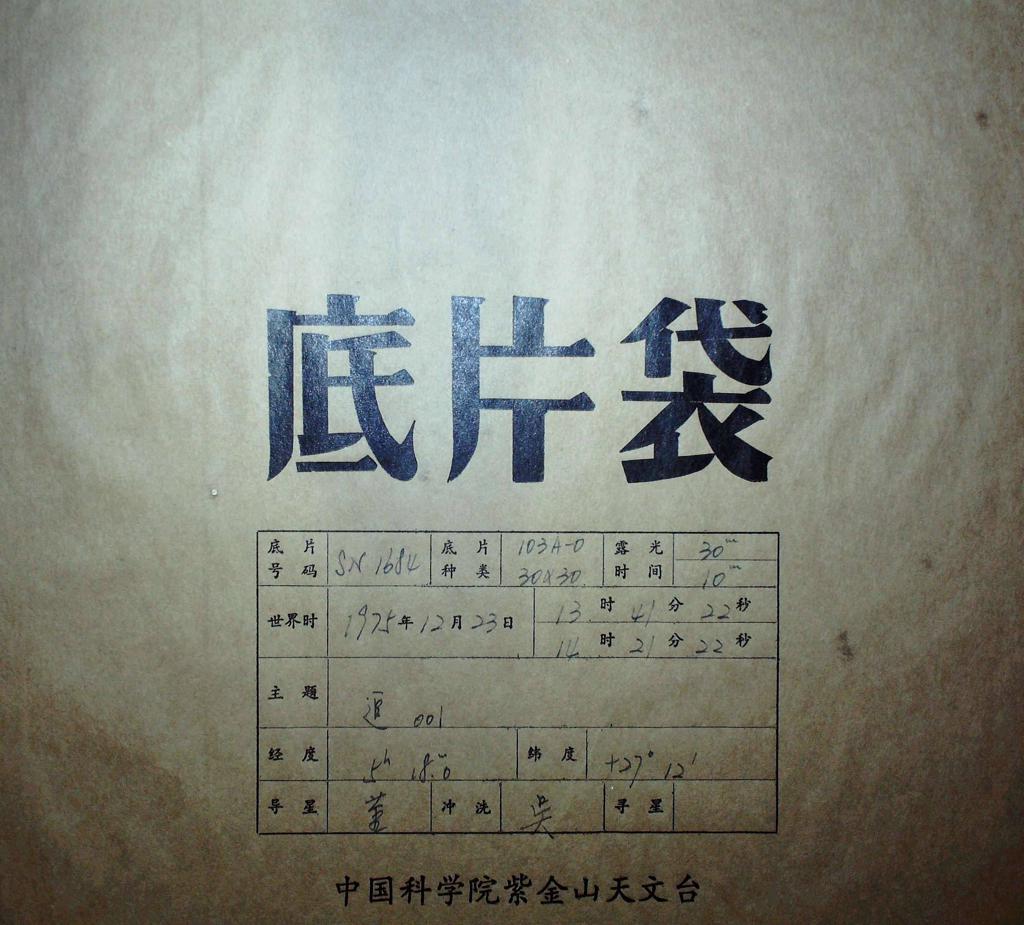 底片袋
底片号码 SN 1684 底片种类 103A-O 30×30 露光时间 30m 10m
世界时 1975年12月23日 13时41分22秒
14时21分22秒
主题 追 001
经度 5h 18m.0 纬度 +27° 12'
导星 董 冲洗 吴 寻星
中国科学院紫金山天文台